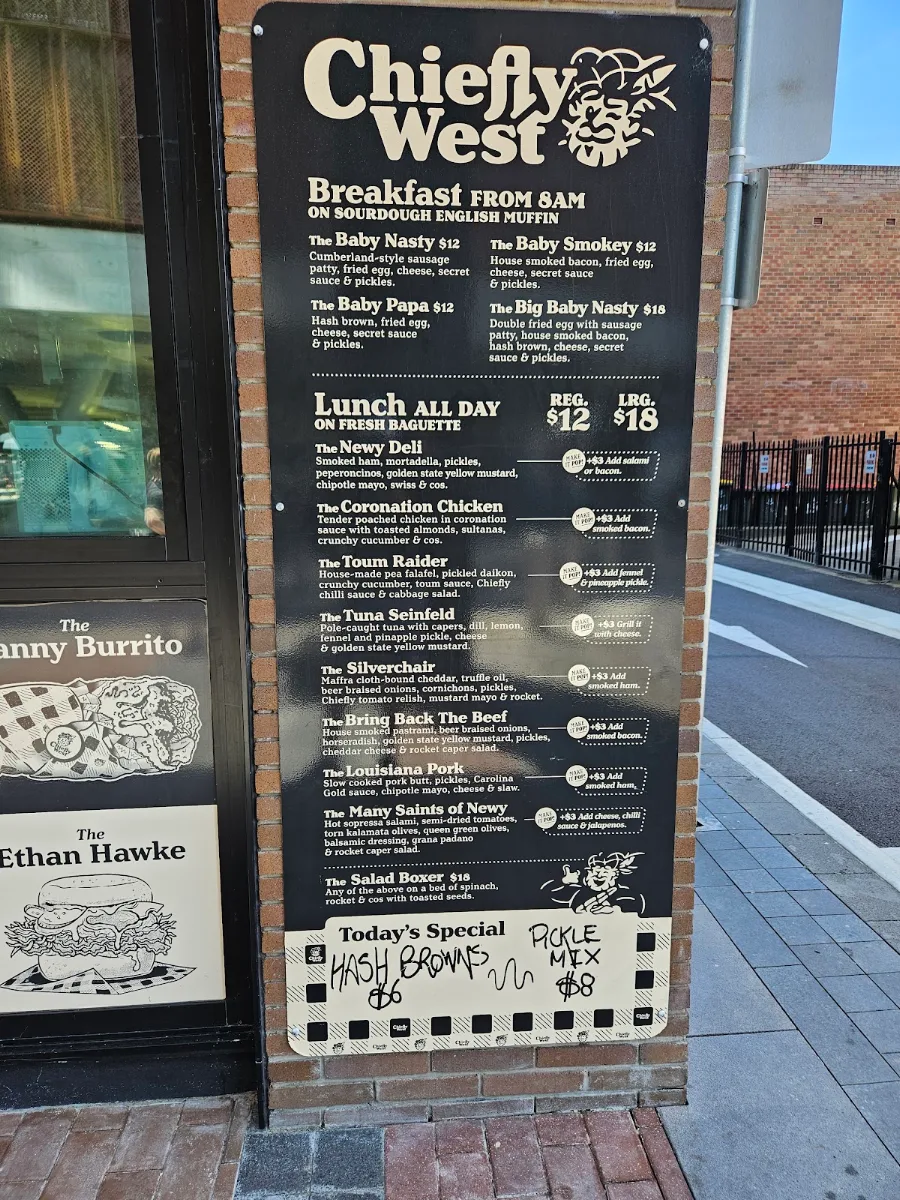 Chiefly
West
Breakfast FROM 8AM
ON SOURDOUGH ENGLISH MUFFIN
The Baby Nasty $12
Cumberland-style sausage
patty, fried egg, cheese, secret
sauce & pickles.
The Baby Smokey $12
House smoked bacon, fried egg,
cheese, secret sauce
& pickles.
The Baby Papa $12
Hash brown, fried egg,
cheese, secret sauce
& pickles.
The Big Baby Nasty $18
Double fried egg with sausage
patty, house smoked bacon,
hash brown, cheese, secret
sauce & pickles.
Lunch ALL DAY
ON FRESH BAGUETTE
REG.
$12
LRG.
$18
The Newy Deli
Smoked ham, mortadella, pickles,
peperoncinos, golden state yellow mustard,
chipotle mayo, swiss & cos.
MAKE IT POP!
+$3 Add salami
or bacon.
The Coronation Chicken
Tender poached chicken in coronation
sauce with toasted almonds, sultanas,
crunchy cucumber & cos.
MAKE IT POP!
+$3 Add
smoked bacon.
The Toum Raider
House-made pea falafel, pickled daikon,
crunchy cucumber, toum sauce, Chiefly
chilli sauce & cabbage salad.
MAKE IT POP!
+$3 Add fennel
& pineapple pickle.
The Tuna Seinfeld
Pole-caught tuna with capers, dill, lemon,
fennel and pinapple pickle, cheese
& golden state yellow mustard.
MAKE IT POP!
+$3 Grill it
with cheese.
The Silverchair
Maffra cloth-bound cheddar, truffle oil,
beer braised onions, cornichons, pickles,
Chiefly tomato relish, mustard mayo & rocket.
MAKE IT POP!
+$3 Add
smoked ham.
The Bring Back The Beef
House smoked pastrami, beer braised onions,
horseradish, golden state yellow mustard, pickles,
cheddar cheese & rocket caper salad.
MAKE IT POP!
+$3 Add
smoked bacon.
The Louisiana Pork
Slow cooked pork butt, pickles, Carolina
Gold sauce, chipotle mayo, cheese & slaw.
MAKE IT POP!
+$3 Add
smoked ham,
The Many Saints of Newy
Hot sopressa salami, semi-dried tomatoes,
torn kalamata olives, queen green olives,
balsamic dressing, grana padano
& rocket caper salad.
MAKE IT POP!
+$3 Add cheese, chilli
sauce & jalapenos.
The Salad Boxer $18
Any of the above on a bed of spinach,
rocket & cos with toasted seeds.
Today's Special
HASH BROWNS
$6
PICKLE
MIX
$8
The
anny Burrito
The
Ethan Hawke